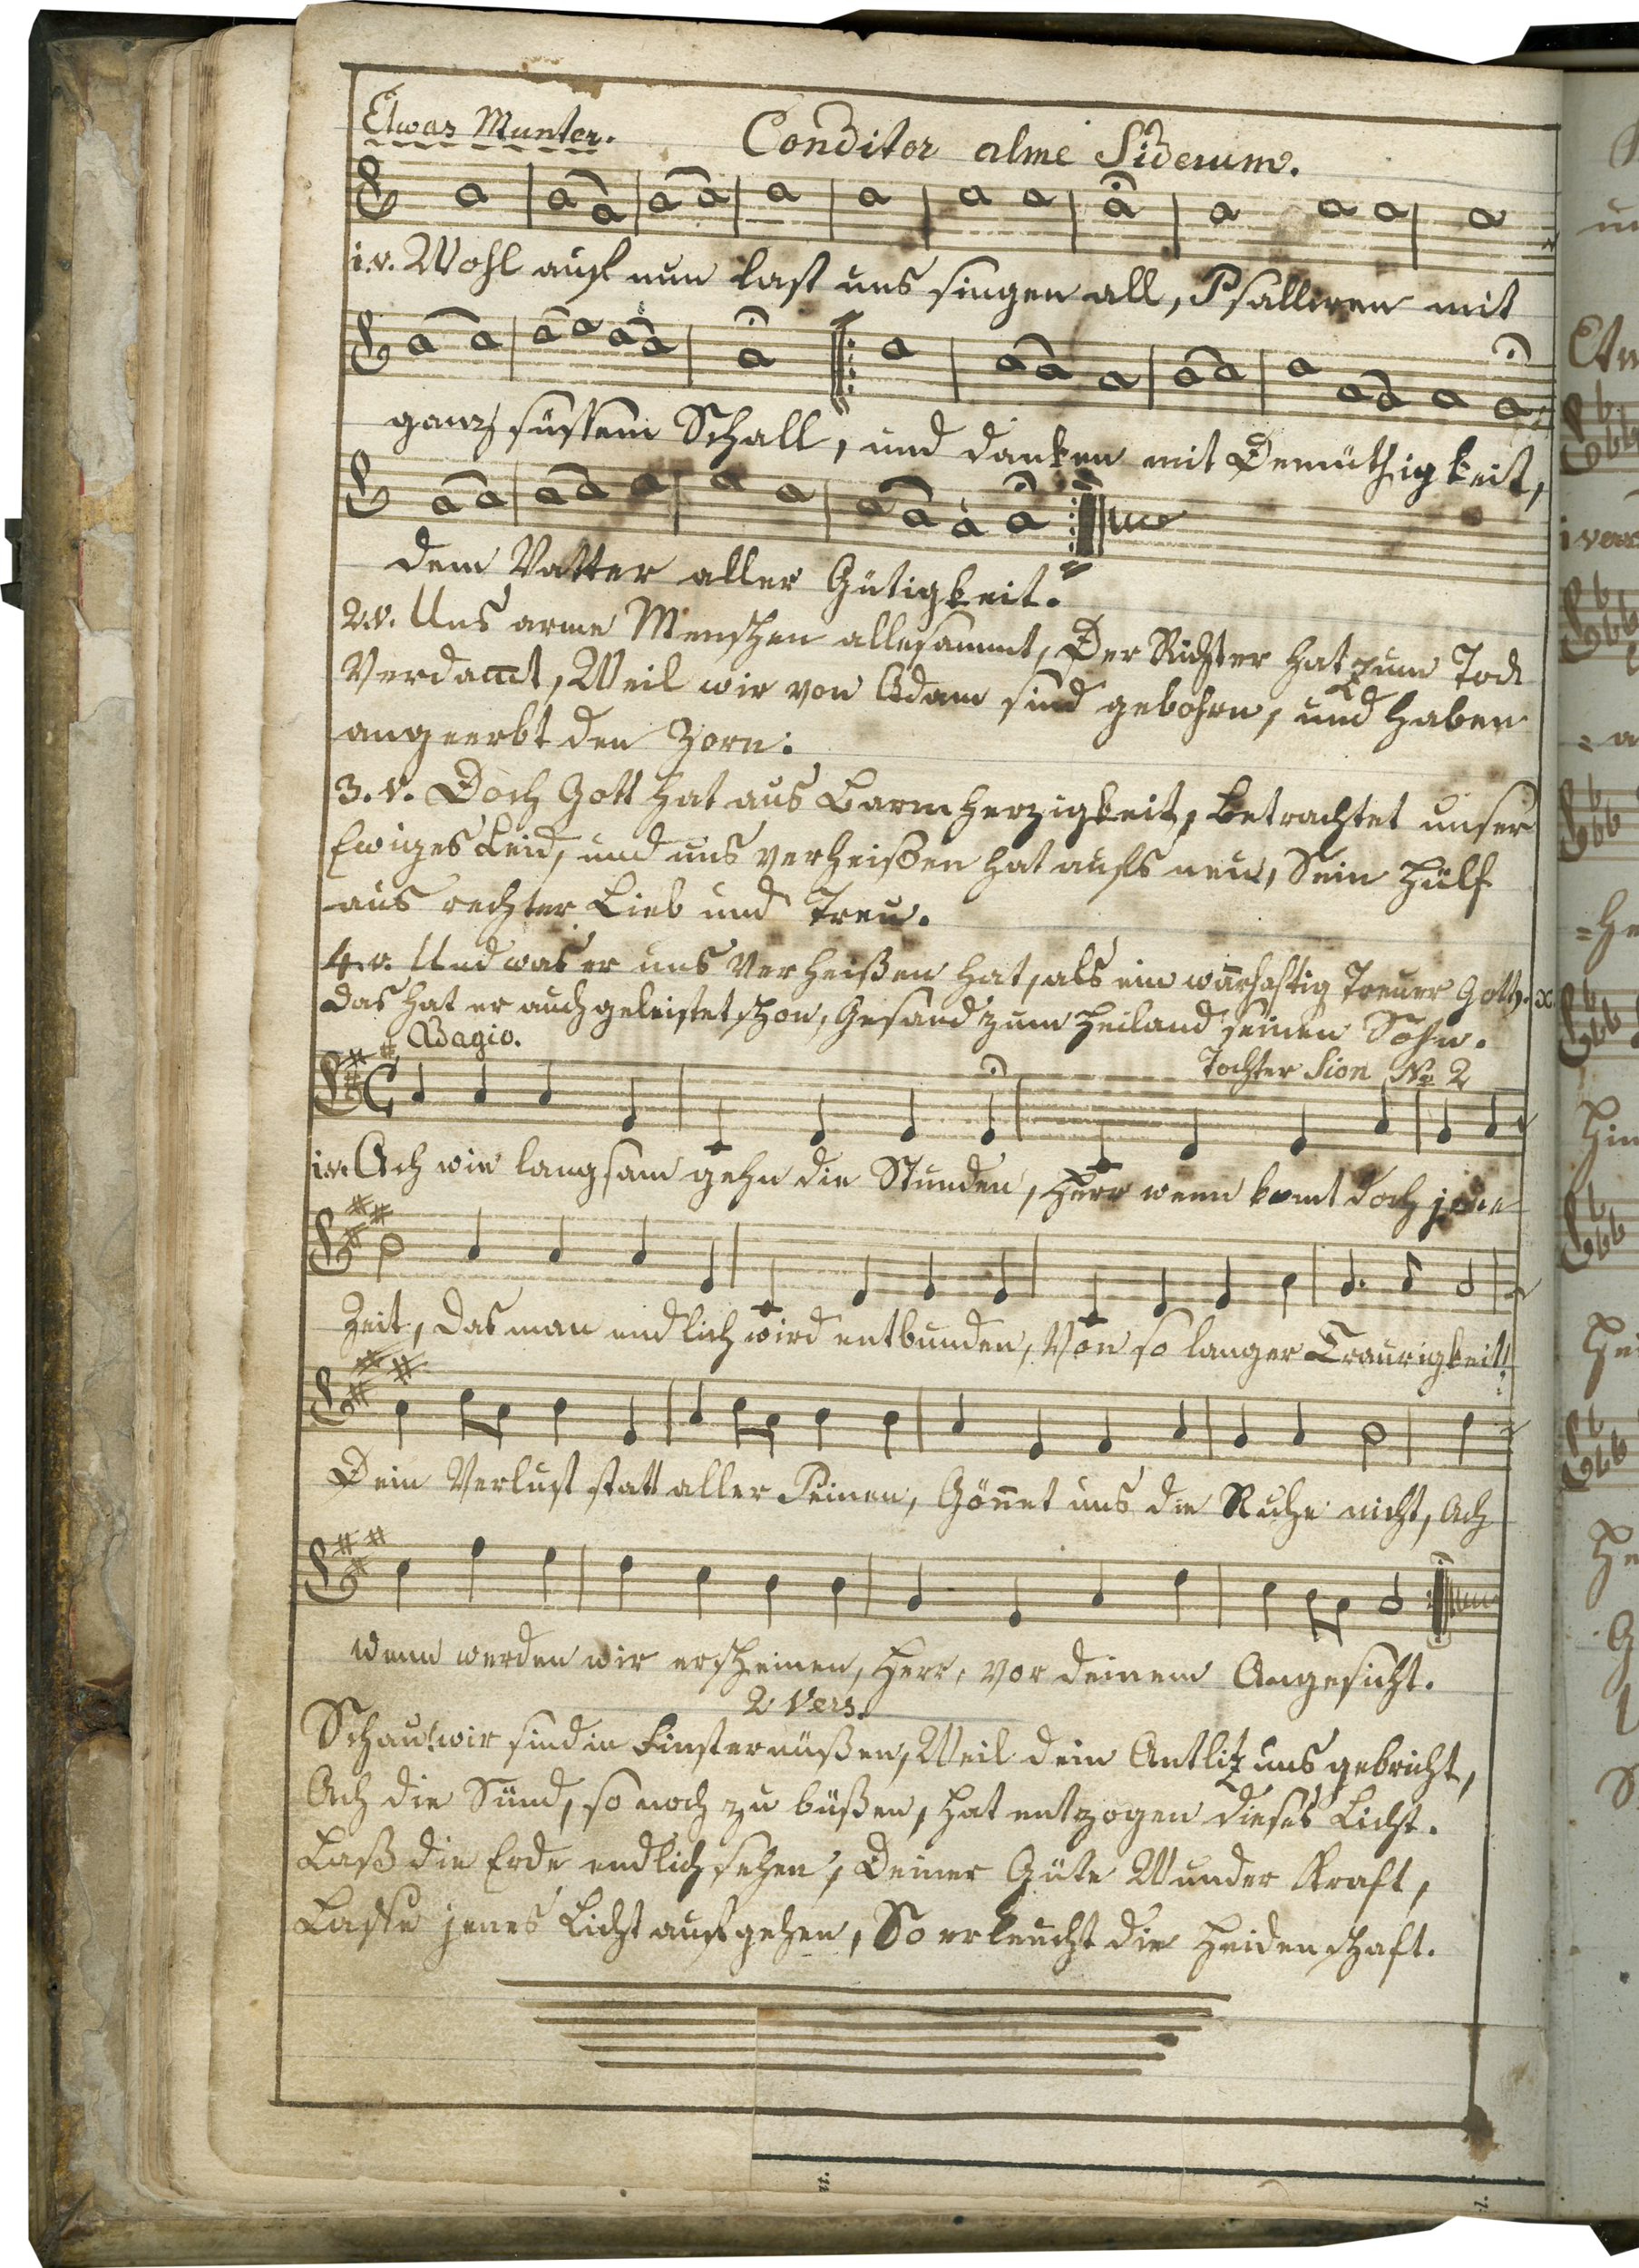 Etwas Munter.
Conditor alme Siderum.
1.v. Wohl auf nun last uns singen all, Psalliren mit
ganz süssem Schall, und danken mit Demüthigkeit,
dem Vatter aller Gütigkeit.
2.v. Uns arme Menschen allesammt, Der Richter hat zum Tod
Verdamt, Weil wir von Adam sind gebohrn, und haben
angeerbt den Zorn:
3.v. Doch Gott hat aus Barmherzigkeit, Betrachtet unser
Ewiges Leid, und uns verheißen hat aufs neu, Sein Hülf
aus rechter Lieb und Treu.
4.v. Und was er uns Verheißen hat, als ein warhaftig Treuer Gott,
Das hat er auch geleistet schon, Gesand zum Heiland seinen Sohn.
Adagio.
Tochter Sion No 2
1.v. Ach wie langsam gehn die Stunden, Herr wenn komt doch jene
Zeit, Das man endlich wird entbunden, Von so langer Traurigkeit!
Dein Verlust statt aller Peinen, Gönnet uns die Ruhe nicht, Ach
wenn werden wir erscheinen, Herr, vor deinem Angesicht.
2 Vers.
Schau! wir sind in Finsternüßen, Weil dein Antlitz uns gebricht,
Ach die Sünd, so noch zu büßen, hat entzogen dieses Licht.
Laß die Erde endlich sehen, Deiner Güte Wunder Kraft,
Lasse jenes Licht aufgehen, So erleucht die Heidenschaft.